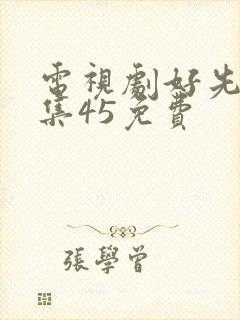 電視劇好先
集45免費
張學曾